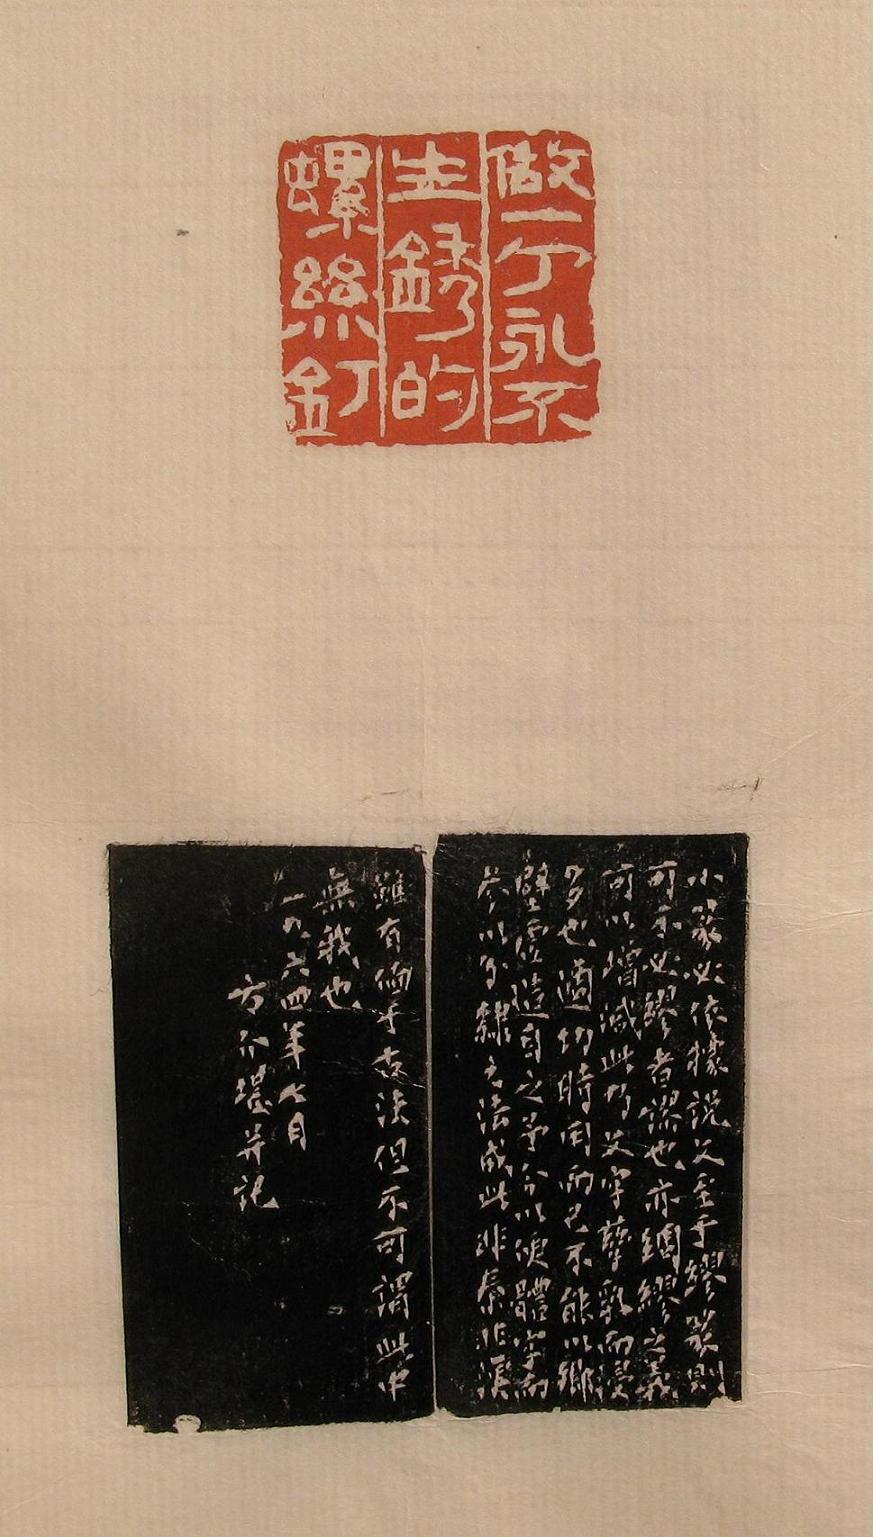 做一个永不
生銹的
螺絲釘
小篆必依據說文至于繆篆則
可不必繆者謬也亦綢繆之義
可以增減此乃文字孳乳而浸
多也適切時用而已不能以鄉
壁虛造目之予今以便體字而
參以分隸之法成此非秦非漢
雖有偭于古法但不可謂此中
無我也
一九六四年七月
方介堪并記